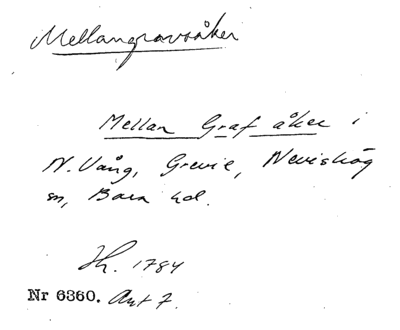 Mellangravsåker
Mellan Graf åker i
N. Vång, Grevie, Nevishög
sn, Bara hd.
Jh. 1784
Nr 6360. Akt 7.